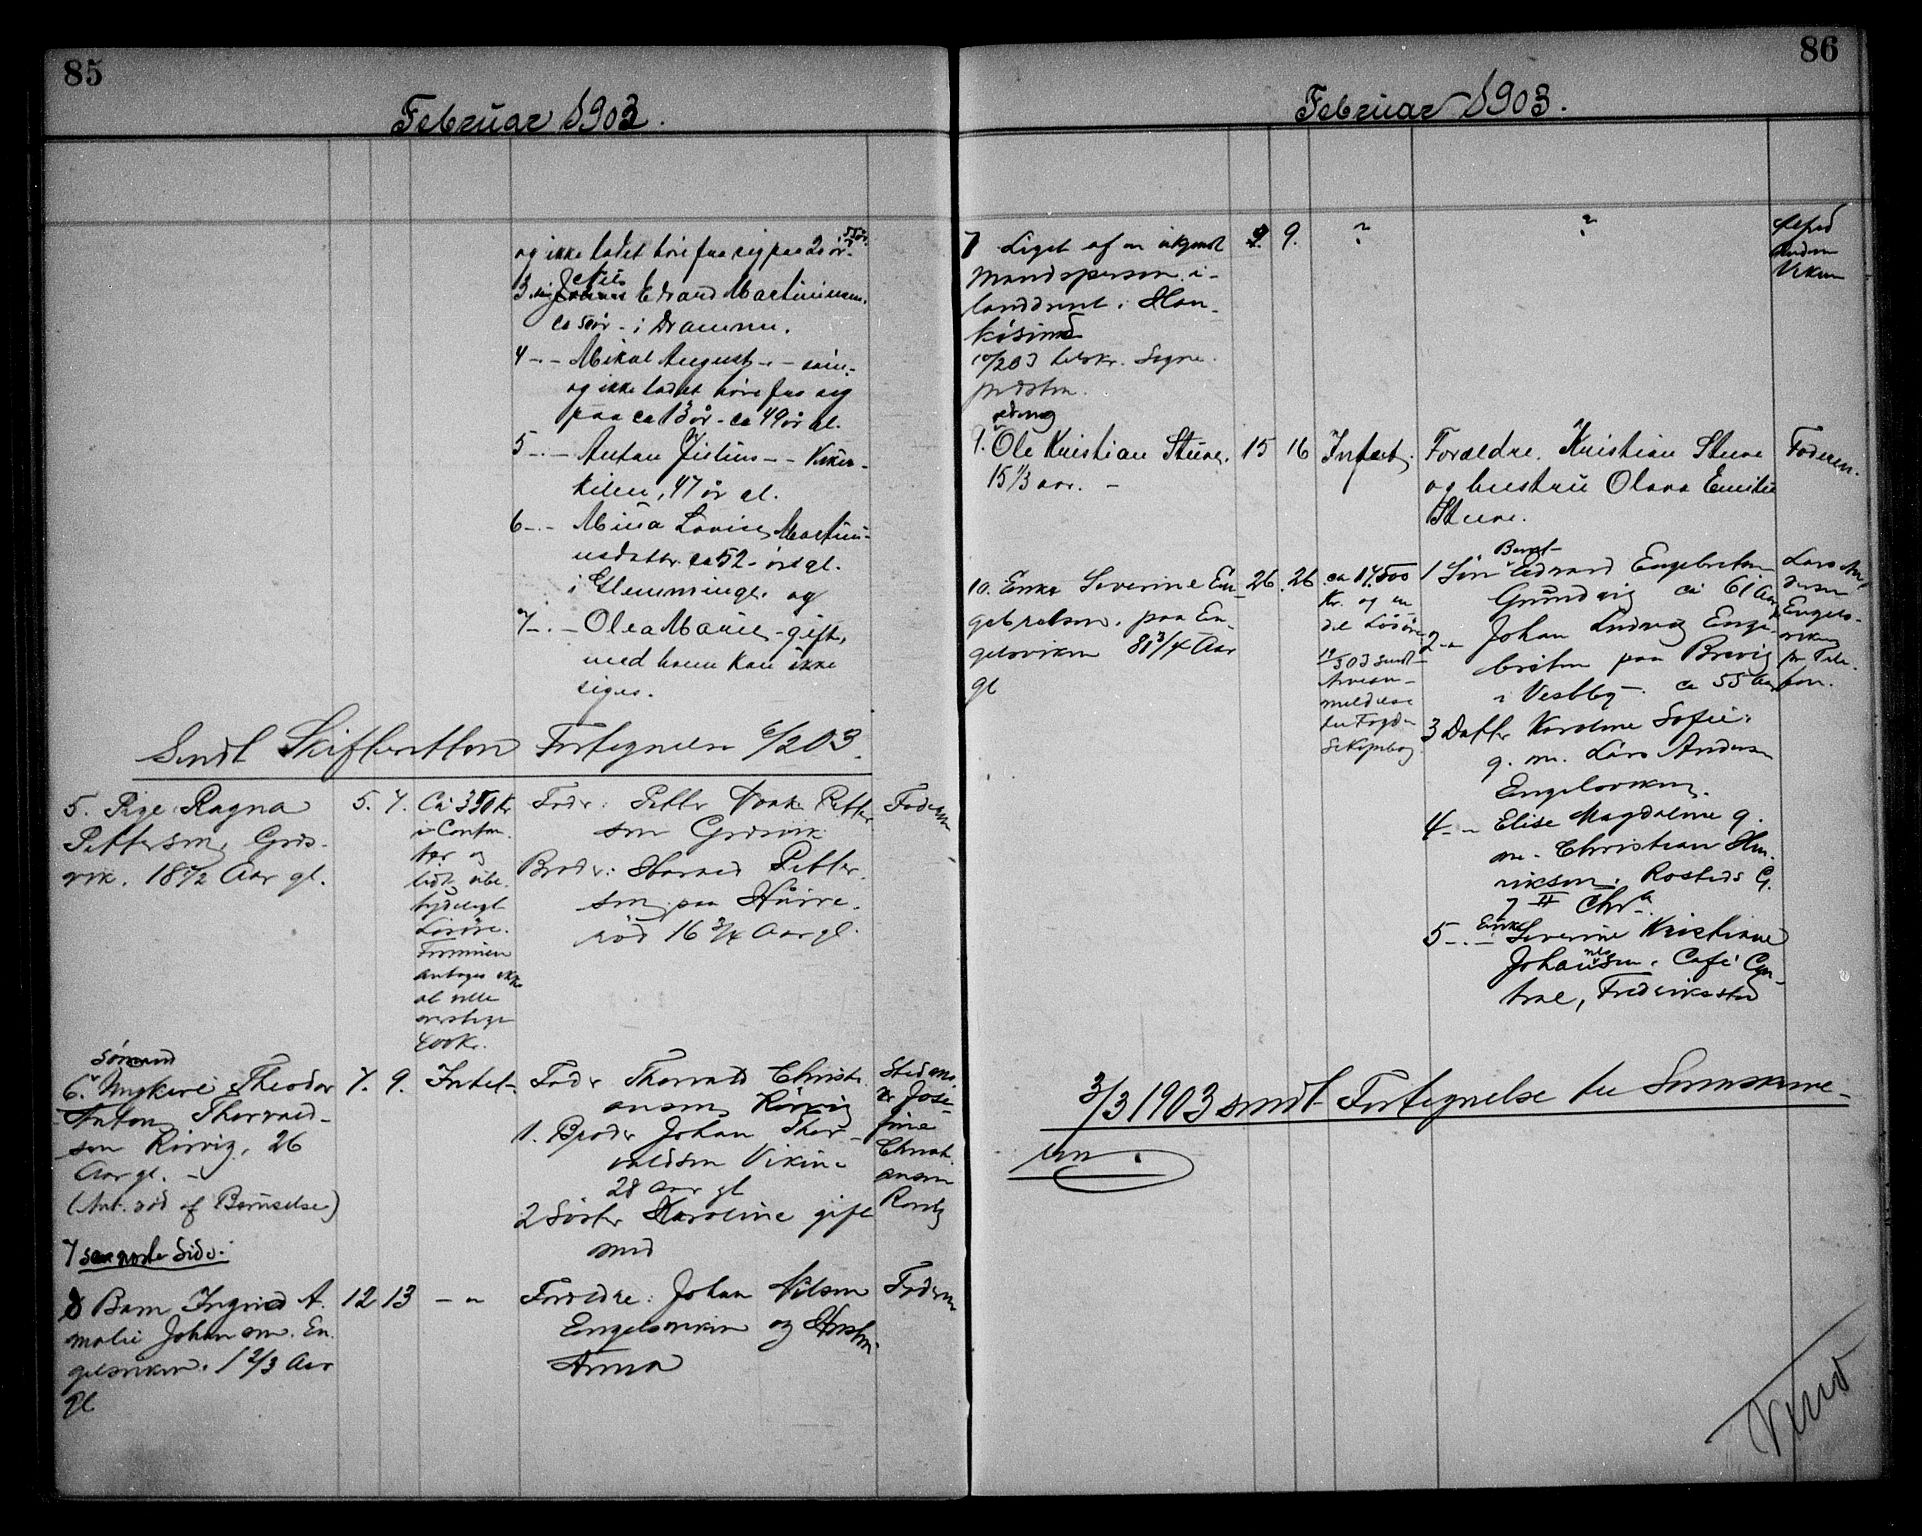 85
Februar 1903.
og ikke ladet høre fra sig paa 2 år.
3 Nils Edvard Martiniusen,
ca 50 år - i Drammen.
4 -.- Mikal August -.- 
og ikke ladet høre fra sig
paa ca 13 år - ca 49 år gl.
5 -.- Anton Julius -.- Viker-
kilen, 47 år gl.
6 -.- Mina Lovise Martini-
usdatter ca 52 år gl.
i Glemminge og
7 -.- Olea Marie - gift,
med hvem kan ikke
siges.
Sendt Skifteretten Fortegnelse 6/2 03.
5. Pige Ragna
Pettersen, Græs-
vik. 18 1/2 Aar gl.
5. 7.
Ca 350 Kr
i Contan-
ter og
lidt ube-
tydeligt
Løsøre.
Formuen
antages ikke
at ville
overstige
400 Kr.
Fader: Petter Petter
sen Græsvik
Broder: Harald Petter-
sen paa
rød 16 3/4 Aar gl.
Faderen
Sømand
6. Ungkarl Theodor
Anton Thorvald-
sen Rørvig, 26
Aar gl. -
(Ant. død af Beruselse)
7. 9. Intet
Fader Thorvald Christi-
ansen Rørvig
1. Broder Johan Thor-
valdsen Vikene
28 Aar gl
2 Søster Karoline gift
med
Jose-
fine
Christi-
ansen
7 se næste Side.
8 Barn Ingrid A-
malie Johansen. En-
gelsviken. 1 2/3 Aar
gl
12 13 - " 
Forældre: Johan Nilsen
Engelsviken og Hustru
Anna
Faderen
86
Februar 1903.
7 Liget af en ukjendt
Mandsperson i-
landdrevet i Han-
køsund
10/2 03 Sogne-
præsten.
9. 9. ? ?
Anders
Viken
9. Ole Kristian Stene.
15 1/3 aar. -
15 16 Intet.
Forældre. Kristian Stene
og hustru Olava Emilie
Stene.
Faderen.
10. Enke Severine En-
gebretsen. paa En-
gelsviken 81 3/4 Aar
gl
26. 26.
ca 17.500
Kr. og en
del Løsøre
10/3 03 sendt
Arvean-
meldelse
til Fogden
1 Søn Bernt Edvard Engebretsen
Grundvig ca 61 Aar
2 -"- Johan Ludvig Enge-
bretsen paa Brevig
i Vestby. ca 55 Aar
3 Datter Karoline Sofie
g. m. Lars Andersen
Engelsviken.
4 -"- Elise Magdalene g.
m. Christian Hen-
riksen. Rosteds G.
7 II Chr.a
5 -.- Enke Severine Kristiane
Johannesen. Café Cen-
tral, Fredriksstad
Lars An-
dersen
Engels-
viken
pr Tele-
fon.
3/3 1903 sendt Fortegnelse til Sorenskrive-
ren.
Vend